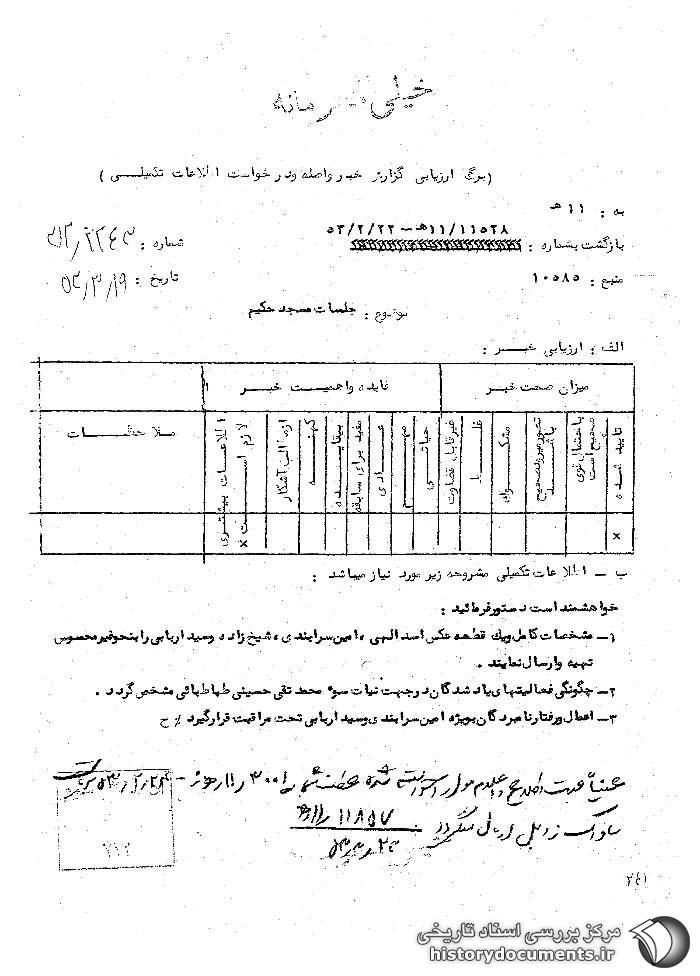 خیلی محرمانه
(برگ ارزیابی گزارش خبر واصله و درخواست اطلاعات تکمیلی)
به : ۱۱ هـ
بازگشت بشماره : ۱۱/۱۱۵۲۸هـ - ۵۳/۲/۲۲
شماره :
منبع : ۱۰۵۸۵
تاریخ : ۵۳/۳/۱۹
موضوع : جلسات مسجد حکیم
الف : ارزیابی خبر :
میزان صحت خبر
فایده و اهمیت خبر
تایید شده
باحتمال قوی صحیح است
تصور میرود صحیح باشد
مشکوک
غلط
غیرقابل قضاوت
حیاتی
مهم
عادی
مفید برای سابقه
بیفایده
کهنه
از مطالب آشکار
اطلاعات بیشتری لازم است
ملاحظات
x
x
ب – اطلاعات تکمیلی مشروحه زیر مورد نیاز میباشد :
خواهشمند است دستور فرمائید :
۱– مشخصات کامل ویک قطعه عکس اسدالهی ، امین سرایندی ، شیخ زاده وسید اربابی را بنحو غیرمحسوس
تهیه وارسال نمایند .
۲– چگونگی فعالیتهای یاد شدگان درجهت نیات سوء محمد تقی حسینی طباطبائی مشخص گردد .
۳– اعمال ورفتار نامبردگان بویژه امین سرایندی وسید اربابی تحت مراقبت قرارگیرد / ح
عیناً جهت اطلاع و اعلام موارد خواسته شده
ساواک زابل ارسال میگردد
۱۱۸۵۷
۲۴۱
مرکز بررسی اسناد تاریخی
historydocuments.ir